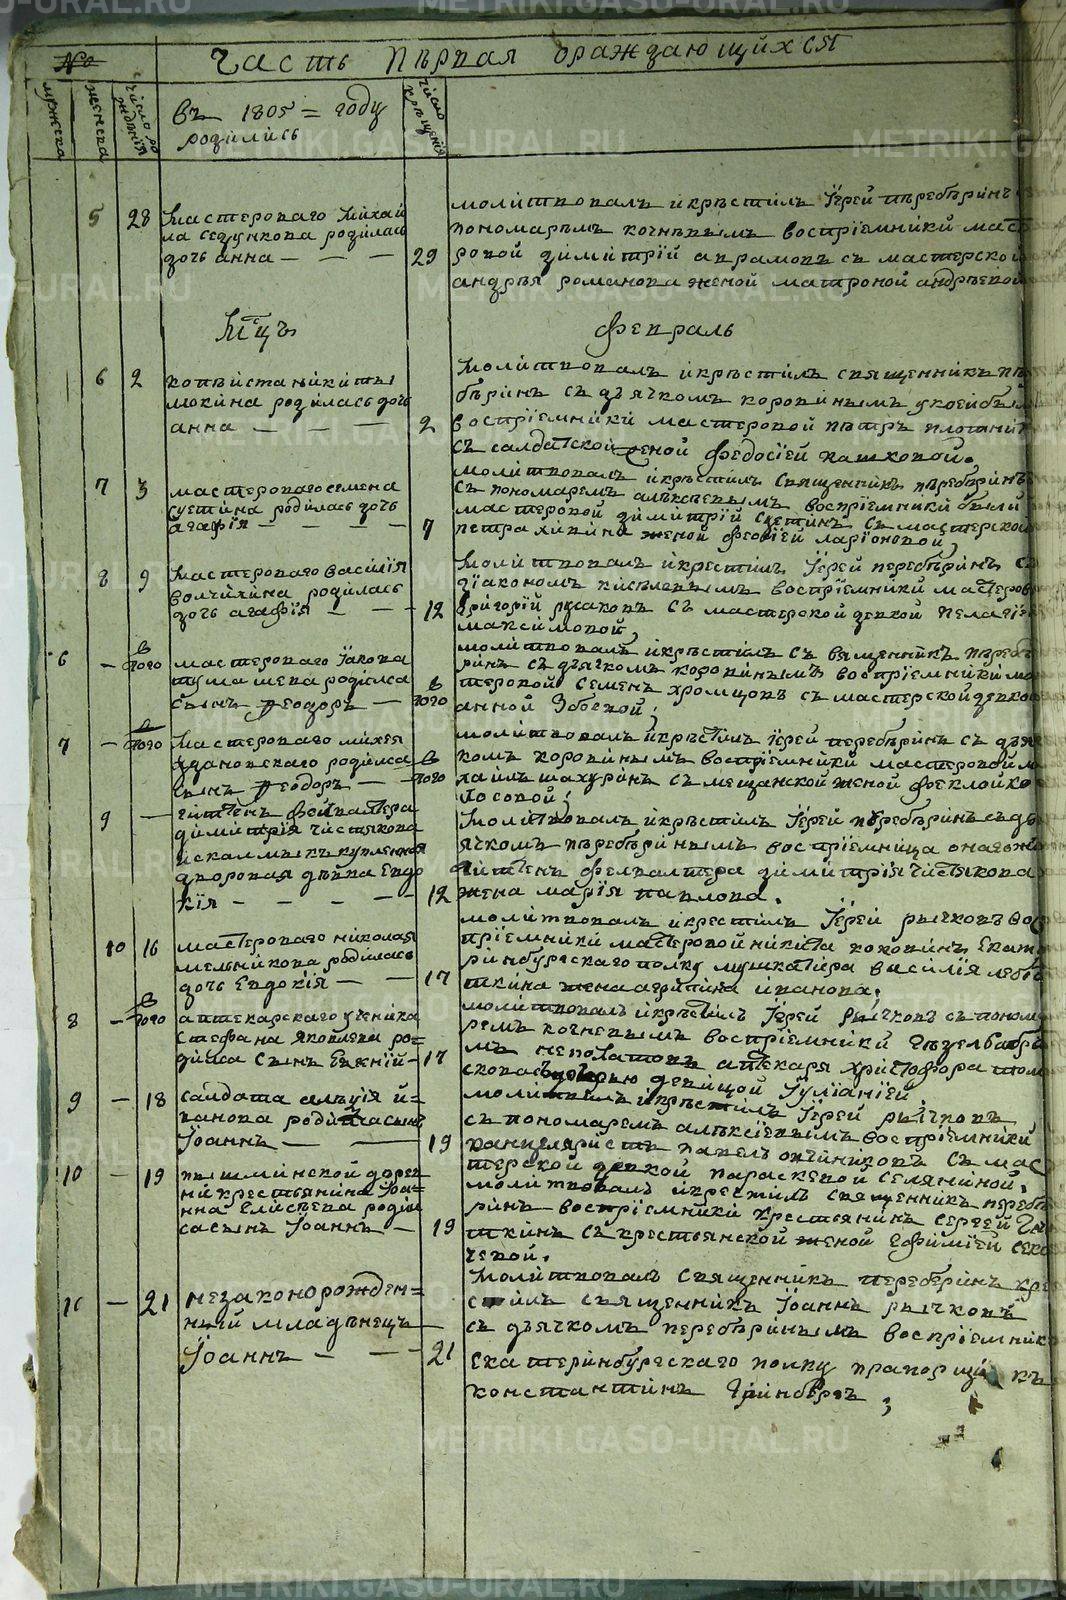 №
Часть Первая ораждающихся
мужеска
женска
число рождения
въ 1805 = году
родились
число крещения
5 28 Мастероваго Михай
ла Седункова родилась
дочь анна — — — 29
молитвовалъ икрѣстилъ Іерей пѣребѣринъ съ
пономарѣмъ кочнѣвымъ воспріемники маст
ровой димитрій аврамовъ съ мастерской
андрѣя романова женой матроной андрѣевой
Мцъ
февраль
6 2 копѣиста никиты
мокина родилась дочь
анна — — — 2
молитвовалъ икрѣстилъ священникъ пѣ
бѣринъ съ дѣячкомъ коровинымъ
воспріемники мастеровой пѣтръ плотни
съ салдатской женой федосіей кашковой.
7 3 мастероваго семена
суетина родилась дочь
агафія — — — 7
молитвовалъ икрѣстилъ священникъ пѣребѣринъ
съ пономаремъ алѣксѣевымъ воспріемники были
мастеровой димитрій суетинъ съ мастерской
петра хивина женой феофіей ларіоновой
8 9 Мастероваго василія
волчихина родилась
дочь агафія — — 12
Молитвовалъ икрестилъ Іерей перебѣринъ съ
діакономъ кисѣлевымъ воспріемники мастеров
григорій русаковъ съ мастерской девкой пелагі
максимовой,
6 — в того мастероваго Іакова
тумашева родилса
сынъ Феодоръ — в того
молитвовалъ икрѣстилъ съвященникъ пѣреб
ринъ съ дѣячкомъ коровинымъ воспріемники ма
теровой семенъ хромцовъ съ мастерской девкой
анной Зобовой;
7 — в того мастероваго михея
ждановскаго родилса
сынъ Феодоръ — в того
молитвовалъ икрѣстилъ іерей перебѣринъ съ дѣя
комъ коровинымъ воспріемники мастеровой м
хаилъ шахуринъ съ мещанской женой феклой ко
лосовой;
9 — гиттенъ фервалтера
димитрія чистякова
искалмыкъ купленная
дворовая дѣвка Евдо
кія — — — 12
Молитвовалъ икрѣстилъ Іерей пѣребѣринъ съ дѣ
ячкомъ пѣребѣринымъ воспріемница онагожъ
гиттенъ фервалтера димитрія чистякова
жена марія павлова.
10 16 мастероваго николая
мельникова родилась
дочь Евдокія — — 17
молитвовалъ икрестилъ Іерей рычковъ вос
пріемники мастеровой никита коковинъ Екате
ринбургскаго полку мушкатера василія лебѣ
ткина жена агрипина иванова;
8 — в того аптекарскаго ученика
стефана яковлева ро=
дилса сынъ Евгній — 17
молитвовалъ икрѣстилъ Іерей рычковъ съ поном
ремъ кочневымъ воспріемники
аптекаря христофора
дочерью девицой Іуліаніей
9 — 18 салдата алѣксія и=
ванова родилса сынъ
Іоаннъ — — 19
молитвовалъ икрѣстилъ Іерей рычковъ
съ пономаремъ алѣксіевымъ воспріемники
канцеляристъ павелъ овчинниковъ съ мас
терской девкой параскевой селяниной.
10 — 19 пышминской дерев
ни крестьянина Іоа=
нна Елисѣева родил
са сынъ Іоаннъ — 19
молитвовалъ икрестилъ священникъ перебѣ
ринъ воспріемники крестьянинъ сергей
ткинъ съ крестьянской женой Ефиміей секо
чевой.
11 — 21 незаконорожден=
ный младѣнецъ
Іоаннъ — — 21
Молитвовалъ священникъ переберинъ кре
стилъ священникъ Іоаннъ рычковъ
съ дѣячкомъ перебѣринымъ воспріемник
Екатеринбургскаго полку прапорщикъ
константинъ Гринбергъ;
METRIKI.GASO-URAL.RU